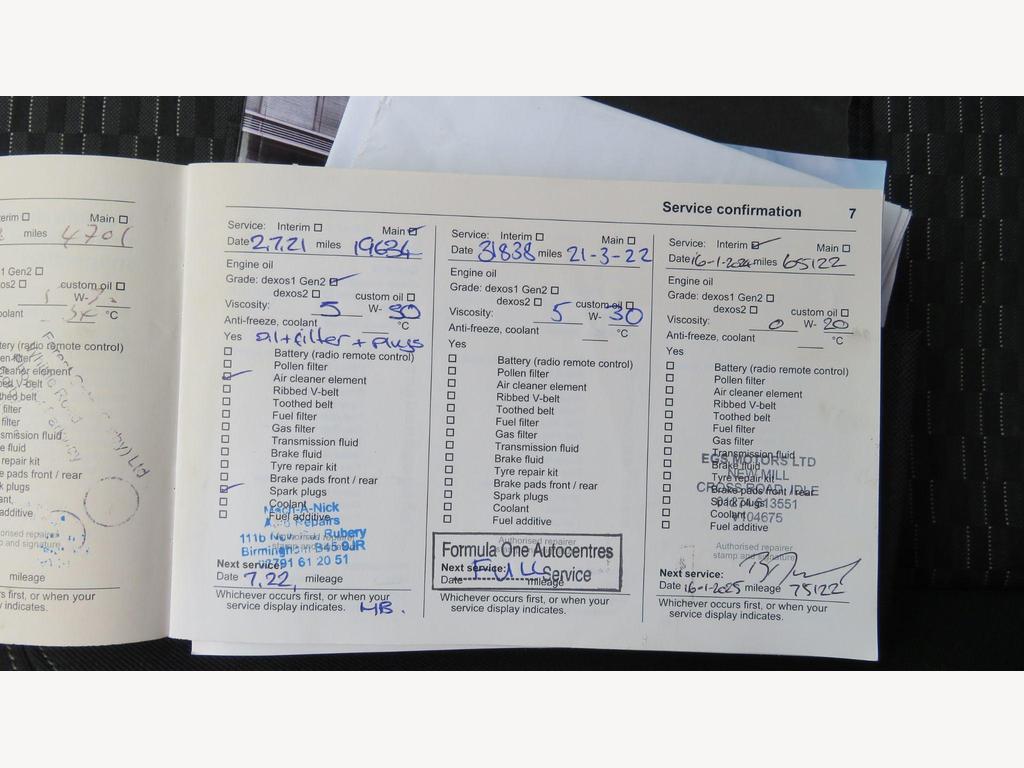 erim ☐ Main ☐
miles 4701
s1 Gen2 ☐
os2 ☐ custom oil ☐
W-
olant °C
tery (radio remote control)
en filter
eaner element
ed V-belt
hed belt
filter
filter
smission fluid
e fluid
repair kit
e pads front / rear
lugs
ant,
additive
orised repairer
p and signature
mileage
s first, or when your
indicates.
Service confirmation 7
Service: Interim ☐ Main ☑
Date 2.7.21 miles 19634
Engine oil
Grade: dexos1 Gen2 ☑
dexos2 ☐ custom oil ☐
Viscosity: 5 W- 30
Anti-freeze, coolant °C
Yes oil+filter+plugs
☐ Battery (radio remote control)
☐ Pollen filter
☑ Air cleaner element
☐ Ribbed V-belt
☐ Toothed belt
☐ Fuel filter
☐ Gas filter
☐ Transmission fluid
☐ Brake fluid
☐ Tyre repair kit
☐ Brake pads front / rear
☑ Spark plugs
☐ Coolant
☐ Fuel additive
Mech-A-Nick
Repairs
111b Rubery
Birmingham B45 9JR
07791 61 20 51
Next service:
Date 7.22, mileage
Whichever occurs first, or when your
service display indicates. HB.
Service: Interim ☐ Main ☐
Date 31838 miles 21-3-22
Engine oil
Grade: dexos1 Gen2 ☐
dexos2 ☐ custom oil ☐
Viscosity: 5 W- 30
Anti-freeze, coolant °C
Yes
☐ Battery (radio remote control)
☐ Pollen filter
☐ Air cleaner element
☐ Ribbed V-belt
☐ Toothed belt
☐ Fuel filter
☐ Gas filter
☐ Transmission fluid
☐ Brake fluid
☐ Tyre repair kit
☐ Brake pads front / rear
☐ Spark plugs
☐ Coolant
☐ Fuel additive
Authorised repairer
Formula One Autocentres
Next service:
FULL Service
Date mileage
Whichever occurs first, or when your
service display indicates.
Service: Interim ☑ Main ☐
Date 16-1-2024 miles 65122
Engine oil
Grade: dexos1 Gen2 ☐
dexos2 ☐ custom oil ☐
Viscosity: 0 W- 20
Anti-freeze, coolant °C
Yes
☐ Battery (radio remote control)
☐ Pollen filter
☐ Air cleaner element
☐ Ribbed V-belt
☐ Toothed belt
☐ Fuel filter
☐ Gas filter
☐ Transmission fluid
☐ Brake fluid
☐ Tyre repair kit
☐ Brake pads front / rear
☐ Spark plugs
☐ Coolant
☐ Fuel additive
EGS MOTORS LTD
NEW MILL
CROSS ROAD, IDLE
01274 613551
V104675
Authorised repairer
stamp and signature
Next service:
Date 16-1-2025 mileage 75122
Whichever occurs first, or when your
service display indicates.